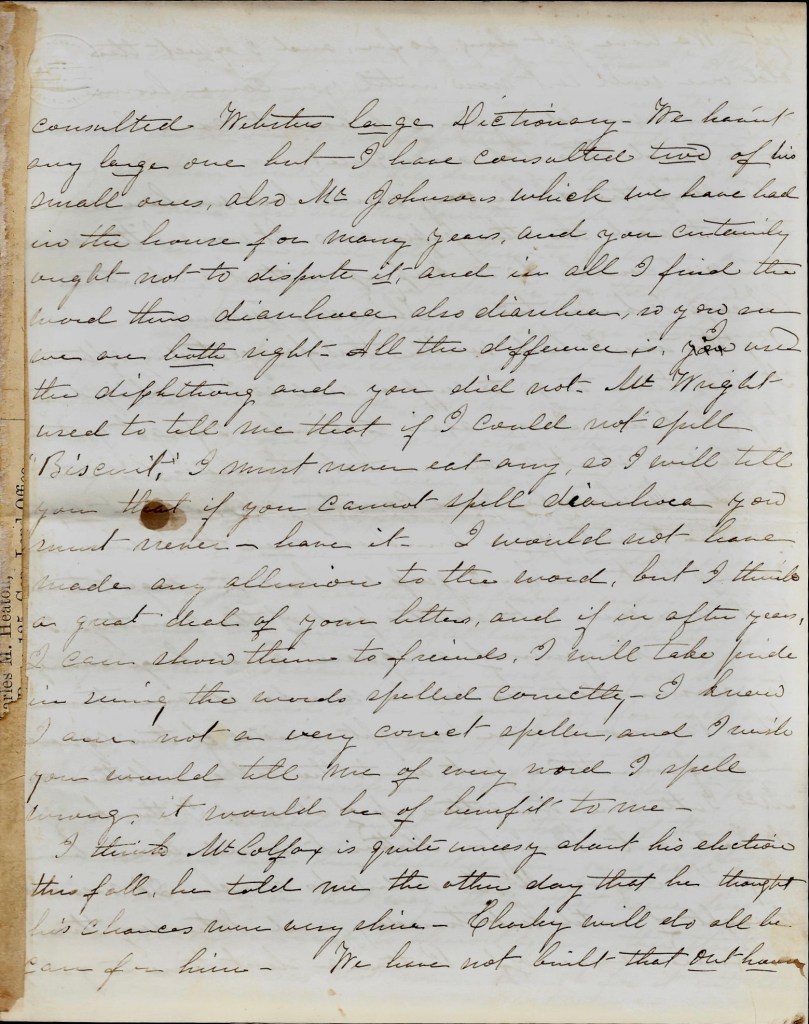 consulted Websters large Dictionary - We haint
any large one but - I have consulted two of his
small ones, also Mr Johnsons which we have had
in the house for many years, and you certainly
ought not to dispute it, and in all I find the
word thus diarrhoea also diarrhea, so you see
we are both right - All the difference is, I used
the diphthong and you did not - Mr Wright
used to tell me that if I could not spell
"Biscuit," I must never eat any, so I will tell
you that if you cannot spell diarrhoea you
must never - have it - I would not have
made any allusion to the word, but I think
a great deal of your letters, and if in after years,
I can show them to freinds, I will take pride
in seeing the words spelled correctly - I know
I am not a very correct speller, and I wish
you would tell me of every word I spell
wrong, it would be of benefit to me -
I think Mr Colfax is quite uneasy about his election
this fall, he told me the other day that he thought
his chances were very slim - Charley will do all he
can for him - We have not built that out house
arles M. Heaton,
Land Office